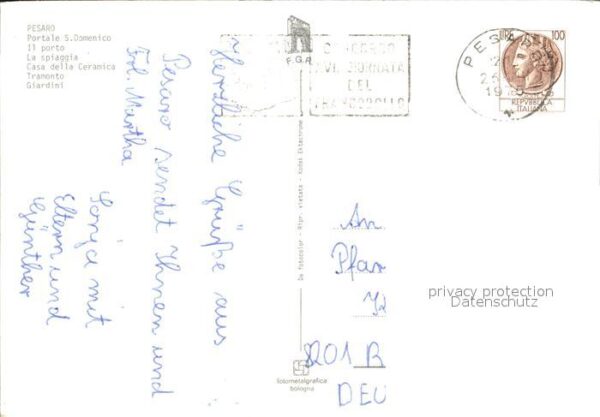 PESARO
Portale S.Domenico
Il porto
La spiaggia
Casa della Ceramica
Tramonto
Giardini
F.G.R.
CONGRESSO
XVI GIORNATA
DEL
FRANCOBOLLO
PESARO
100
REPVBBLICA
ITALIANA
Herzliche Grüße aus
Pesaro sendet Ihnen und
Frl. Martha
Sonja mit
Eltern und
Günther
Da fotocolor - Ripr. vietata - Kodak Ektachrome
fotometalgrafica
bologna
An
Pfar
8201 R
DEU
privacy protection
Datenschutz